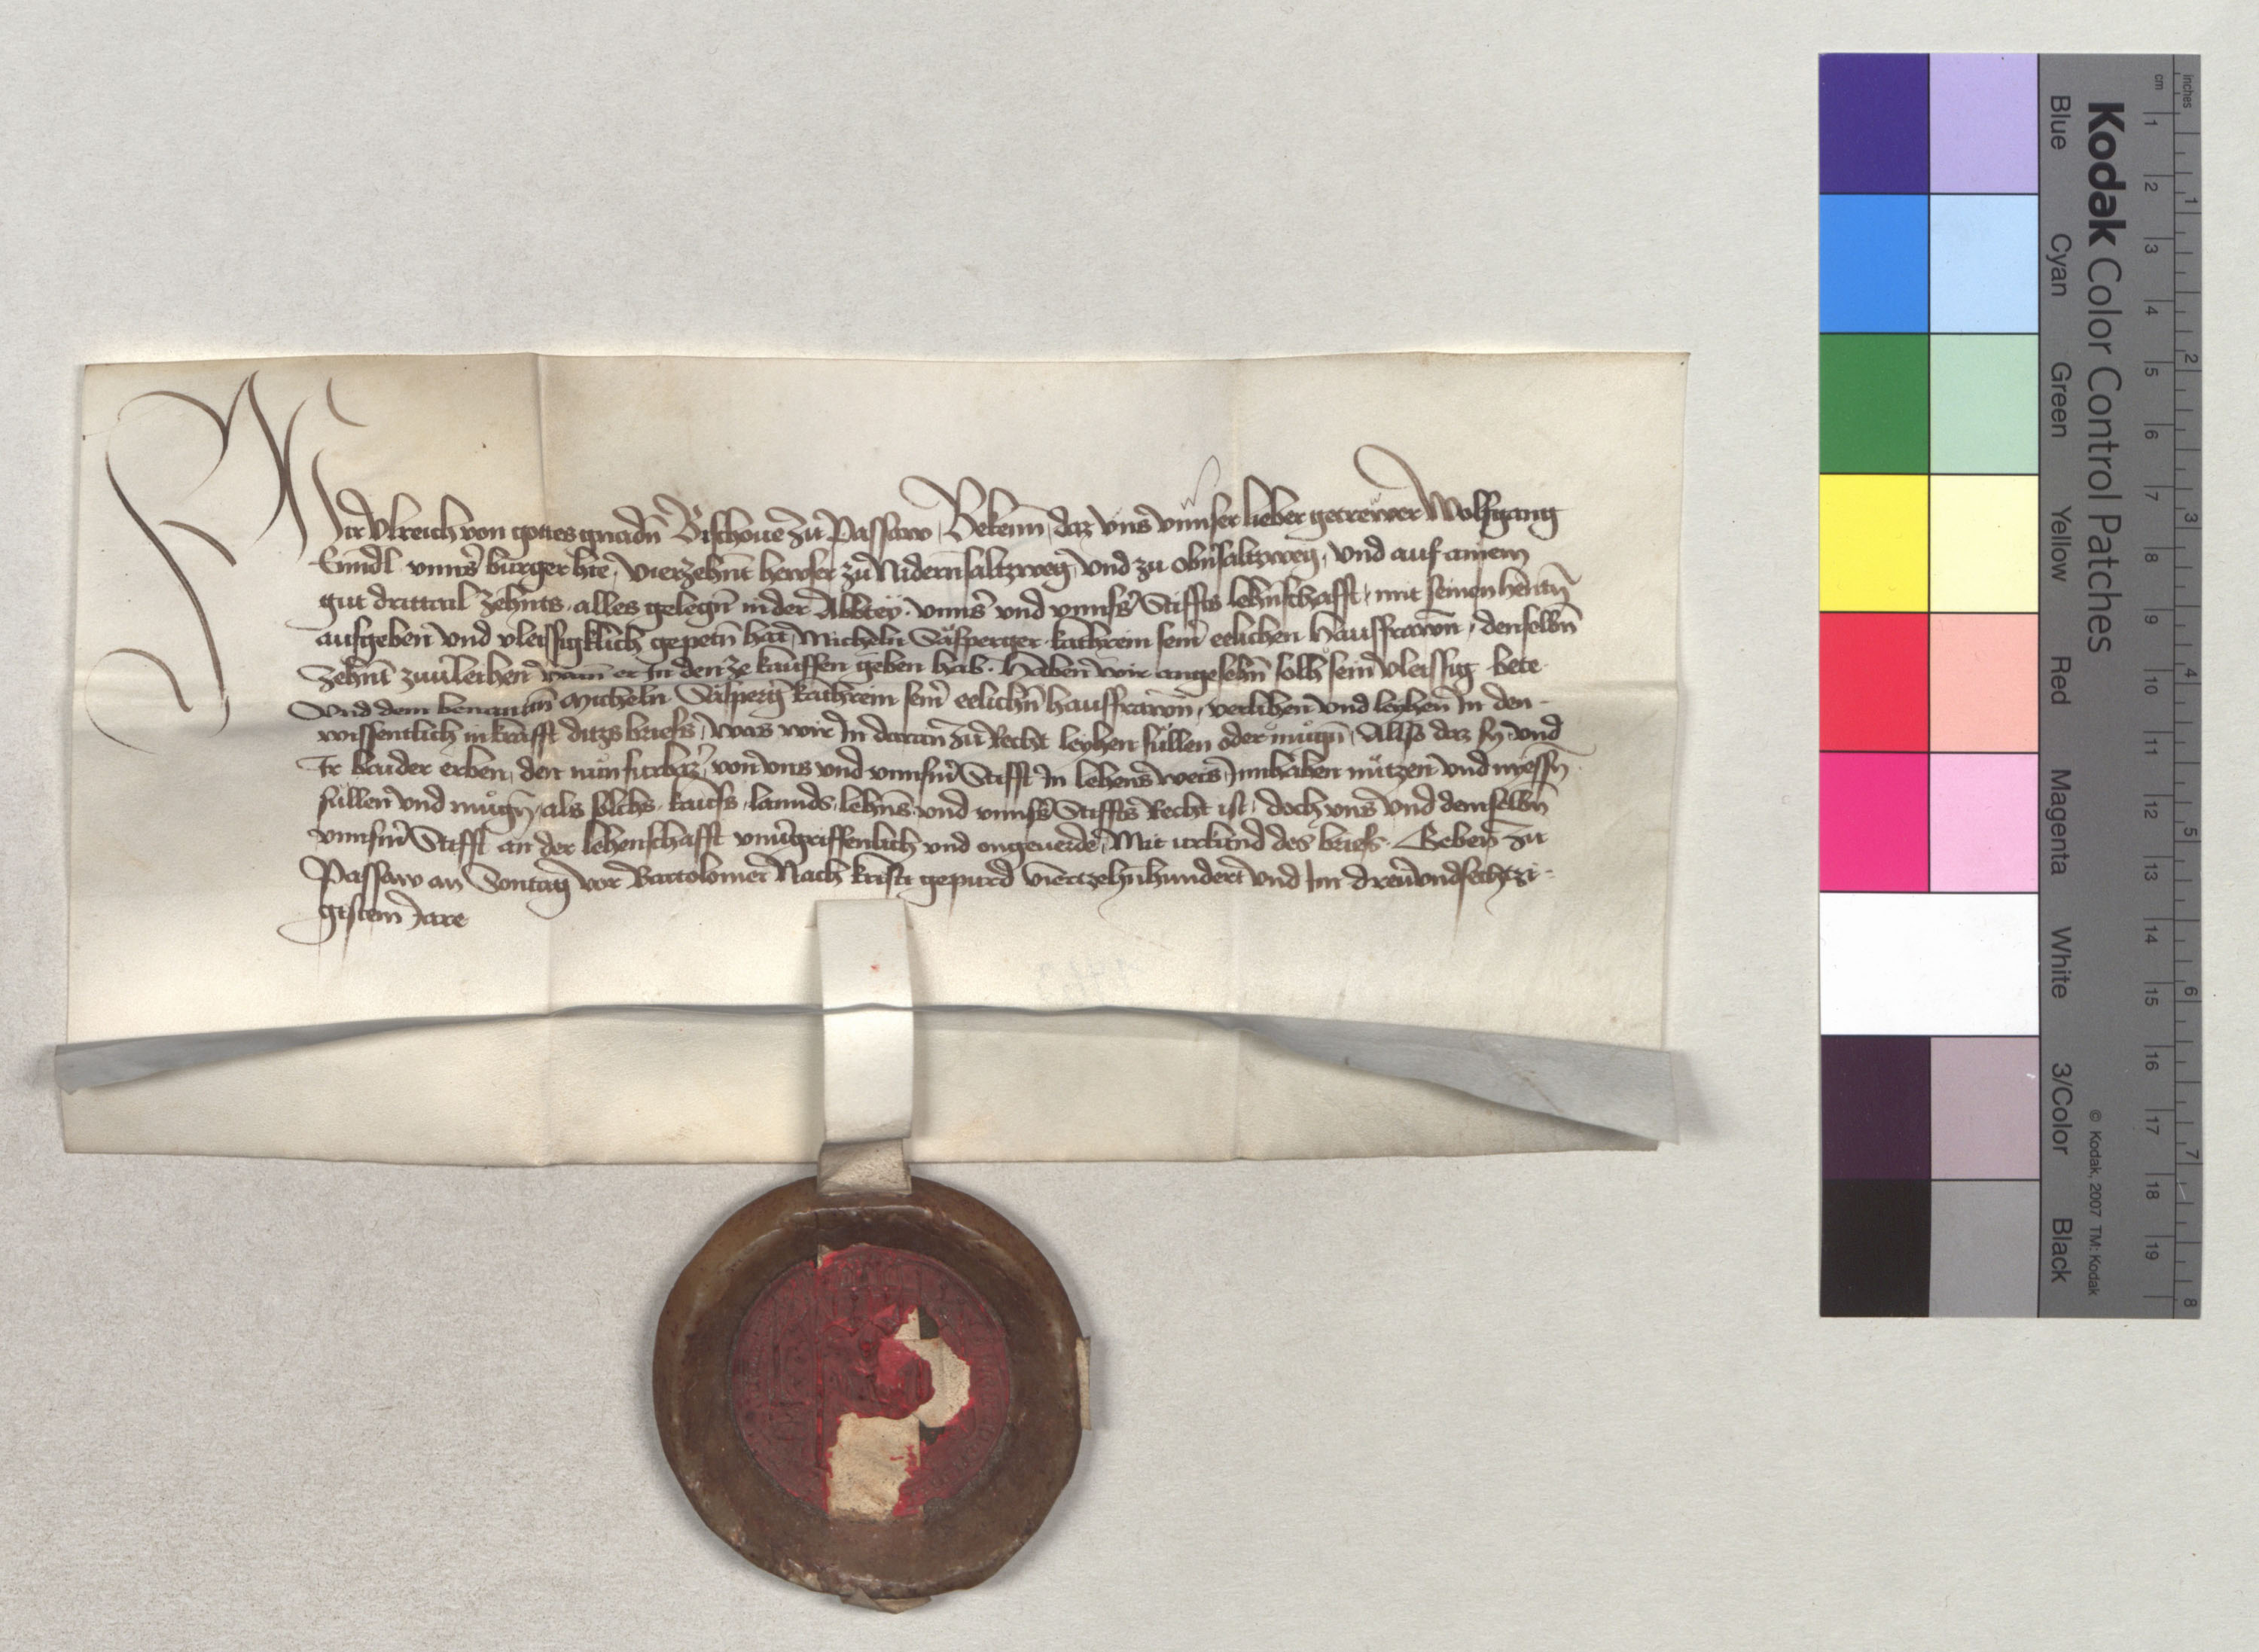 Wir Ulreich von gottes gnadn Bischoue zu Passaw, Bekenn, daz uns unnser lieber getrewer Wolfgang
unnser burger hie, vierzehent hewser zu Nidernsaltzweg, und zu obernsaltzweg, und auf ainem
gut drittail zehnts, alles gelegn in der Abbtey, unns und unnss Stiffts lehnschafft, mit seinen henndn
aufgeben und vleissigklich gepetn hat, Micheln Sälsperger kathrein seinr eelichen hausfrawn, denselbn
zehnt zuuerleihen wann er In den ze kauffen geben hab. Haben wir angesehn solh sein vleissig bete
Und dem benantn Micheln Sälsperger kathrein seinr eelichn hausfrawn, verlihen und leyhen In den
wissentlich in krafft ditzs briefs, was wir In daran zu Recht leyhen sullen oder mugn, Allso daz sy und
Ir bruder erben, den nun furbaz, von uns und unnserm Stifft In lehens weis, Innhaben nutzen und nyessn
sullen und mugn, als solhs kaufs, lannds, lehns und unnss Stiffts Recht ist, doch uns und demselbn
unnserm Stifft an der lehenschafft unuergriffenlich und ongeuerde, Mit urkund des briefs. Geben zu
Passaw an Sontag vor Bartolomei Nach kristi gepurd vierzehnhundert und Im drewundsechtzi-
gistem Jare
Kodak Color Control Patches
Blue Cyan Green Yellow Red Magenta White 3/Color Black
© Kodak, 2007 TM: Kodak
cm 1 2 3 4 5 6 7 8 9 10 11 12 13 14 15 16 17 18 19
inches 1 2 3 4 5 6 7 8